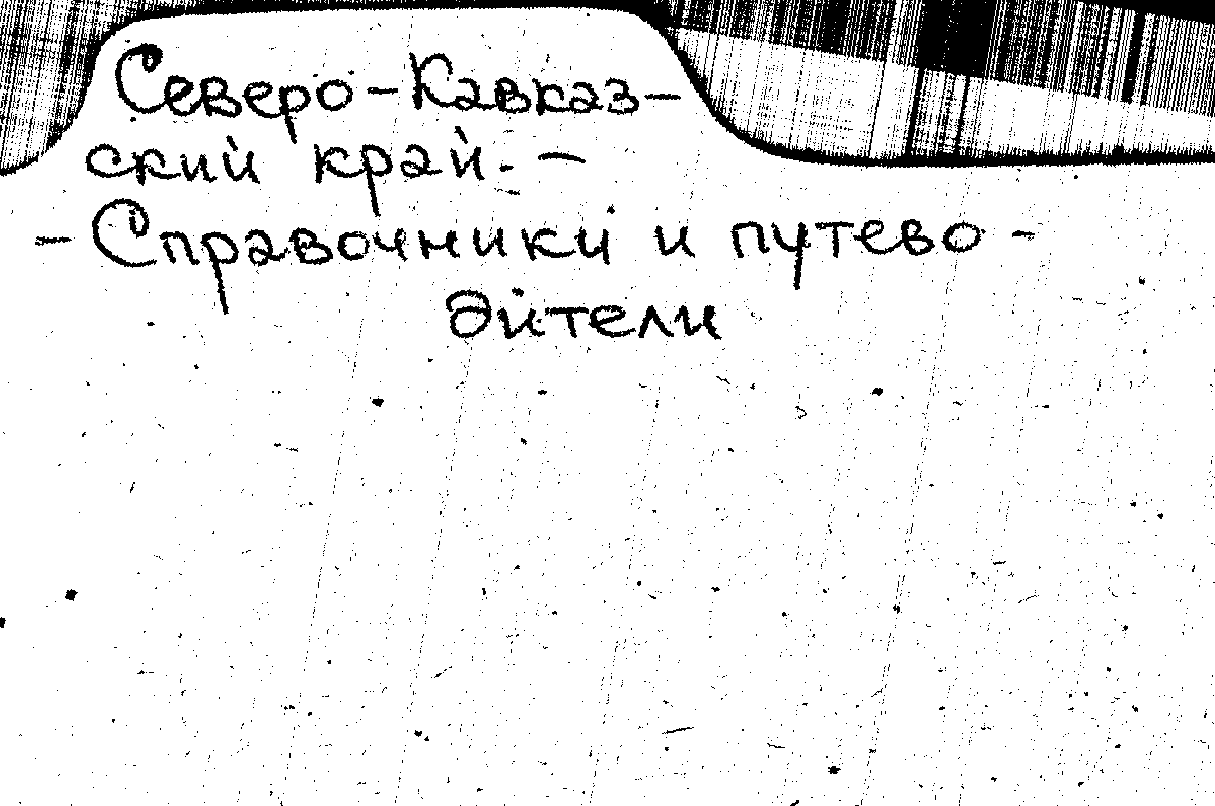 Северо-Кавказ-
ский край. —
- Справочники и путево-
дители